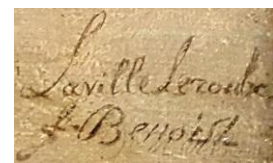 Laville Leroulx
f. Benoist